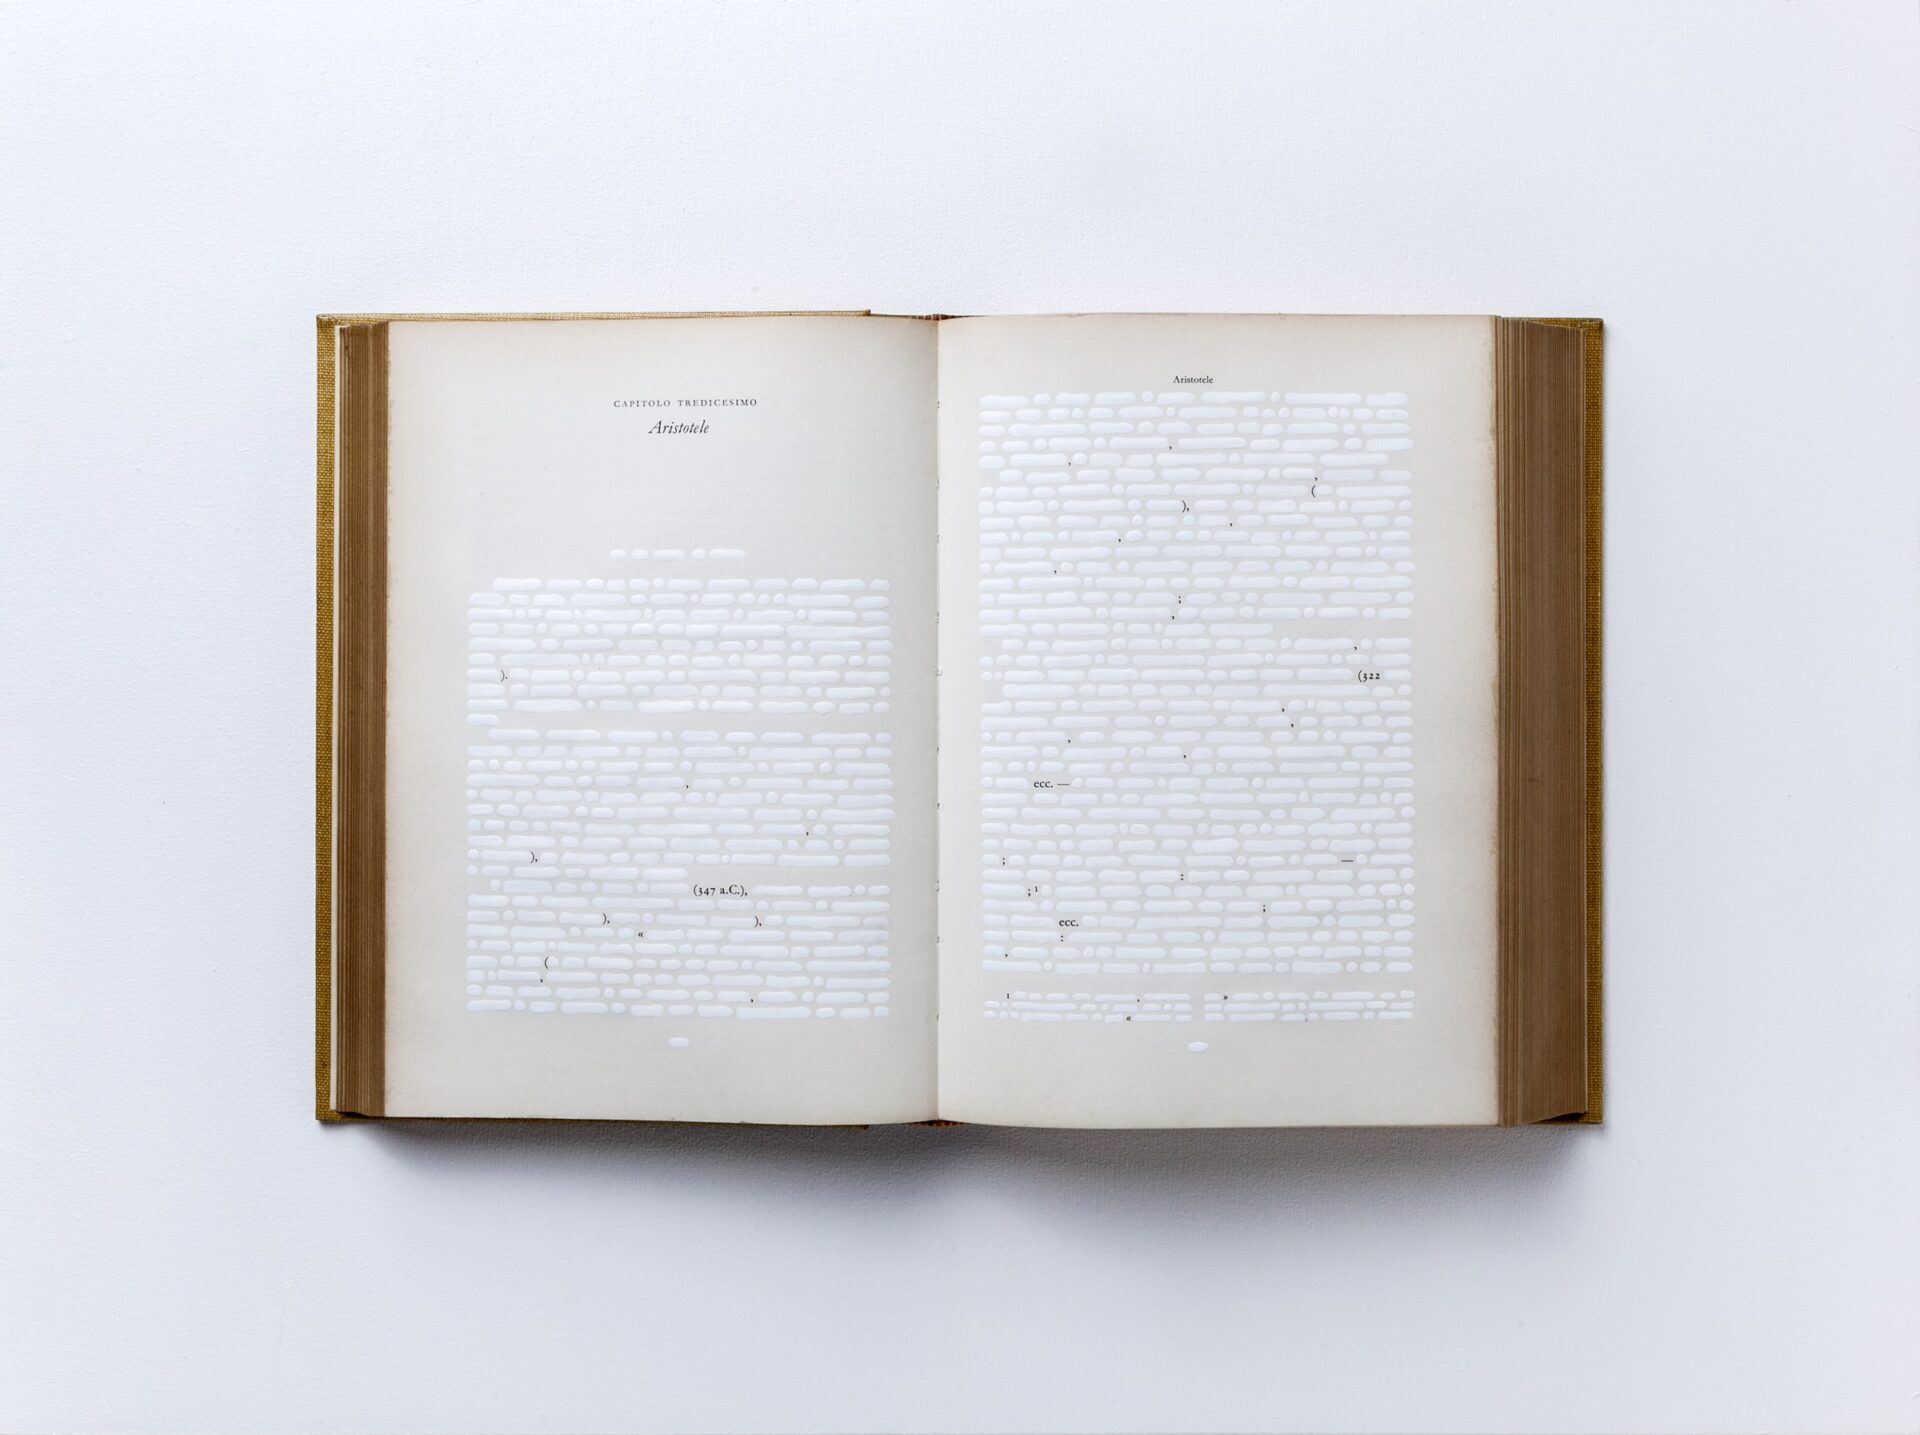 CAPITOLO TREDICESIMO
Aristotele
).
,
,
),
(347 a.C.),
), ),
«
(
,
,
Aristotele
,
,
,
(
),
,
,
,
;
,
,
(322
,
,
,
,
ecc. —
; —
:
; ¹
;
ecc.
:
,
¹ , »
«